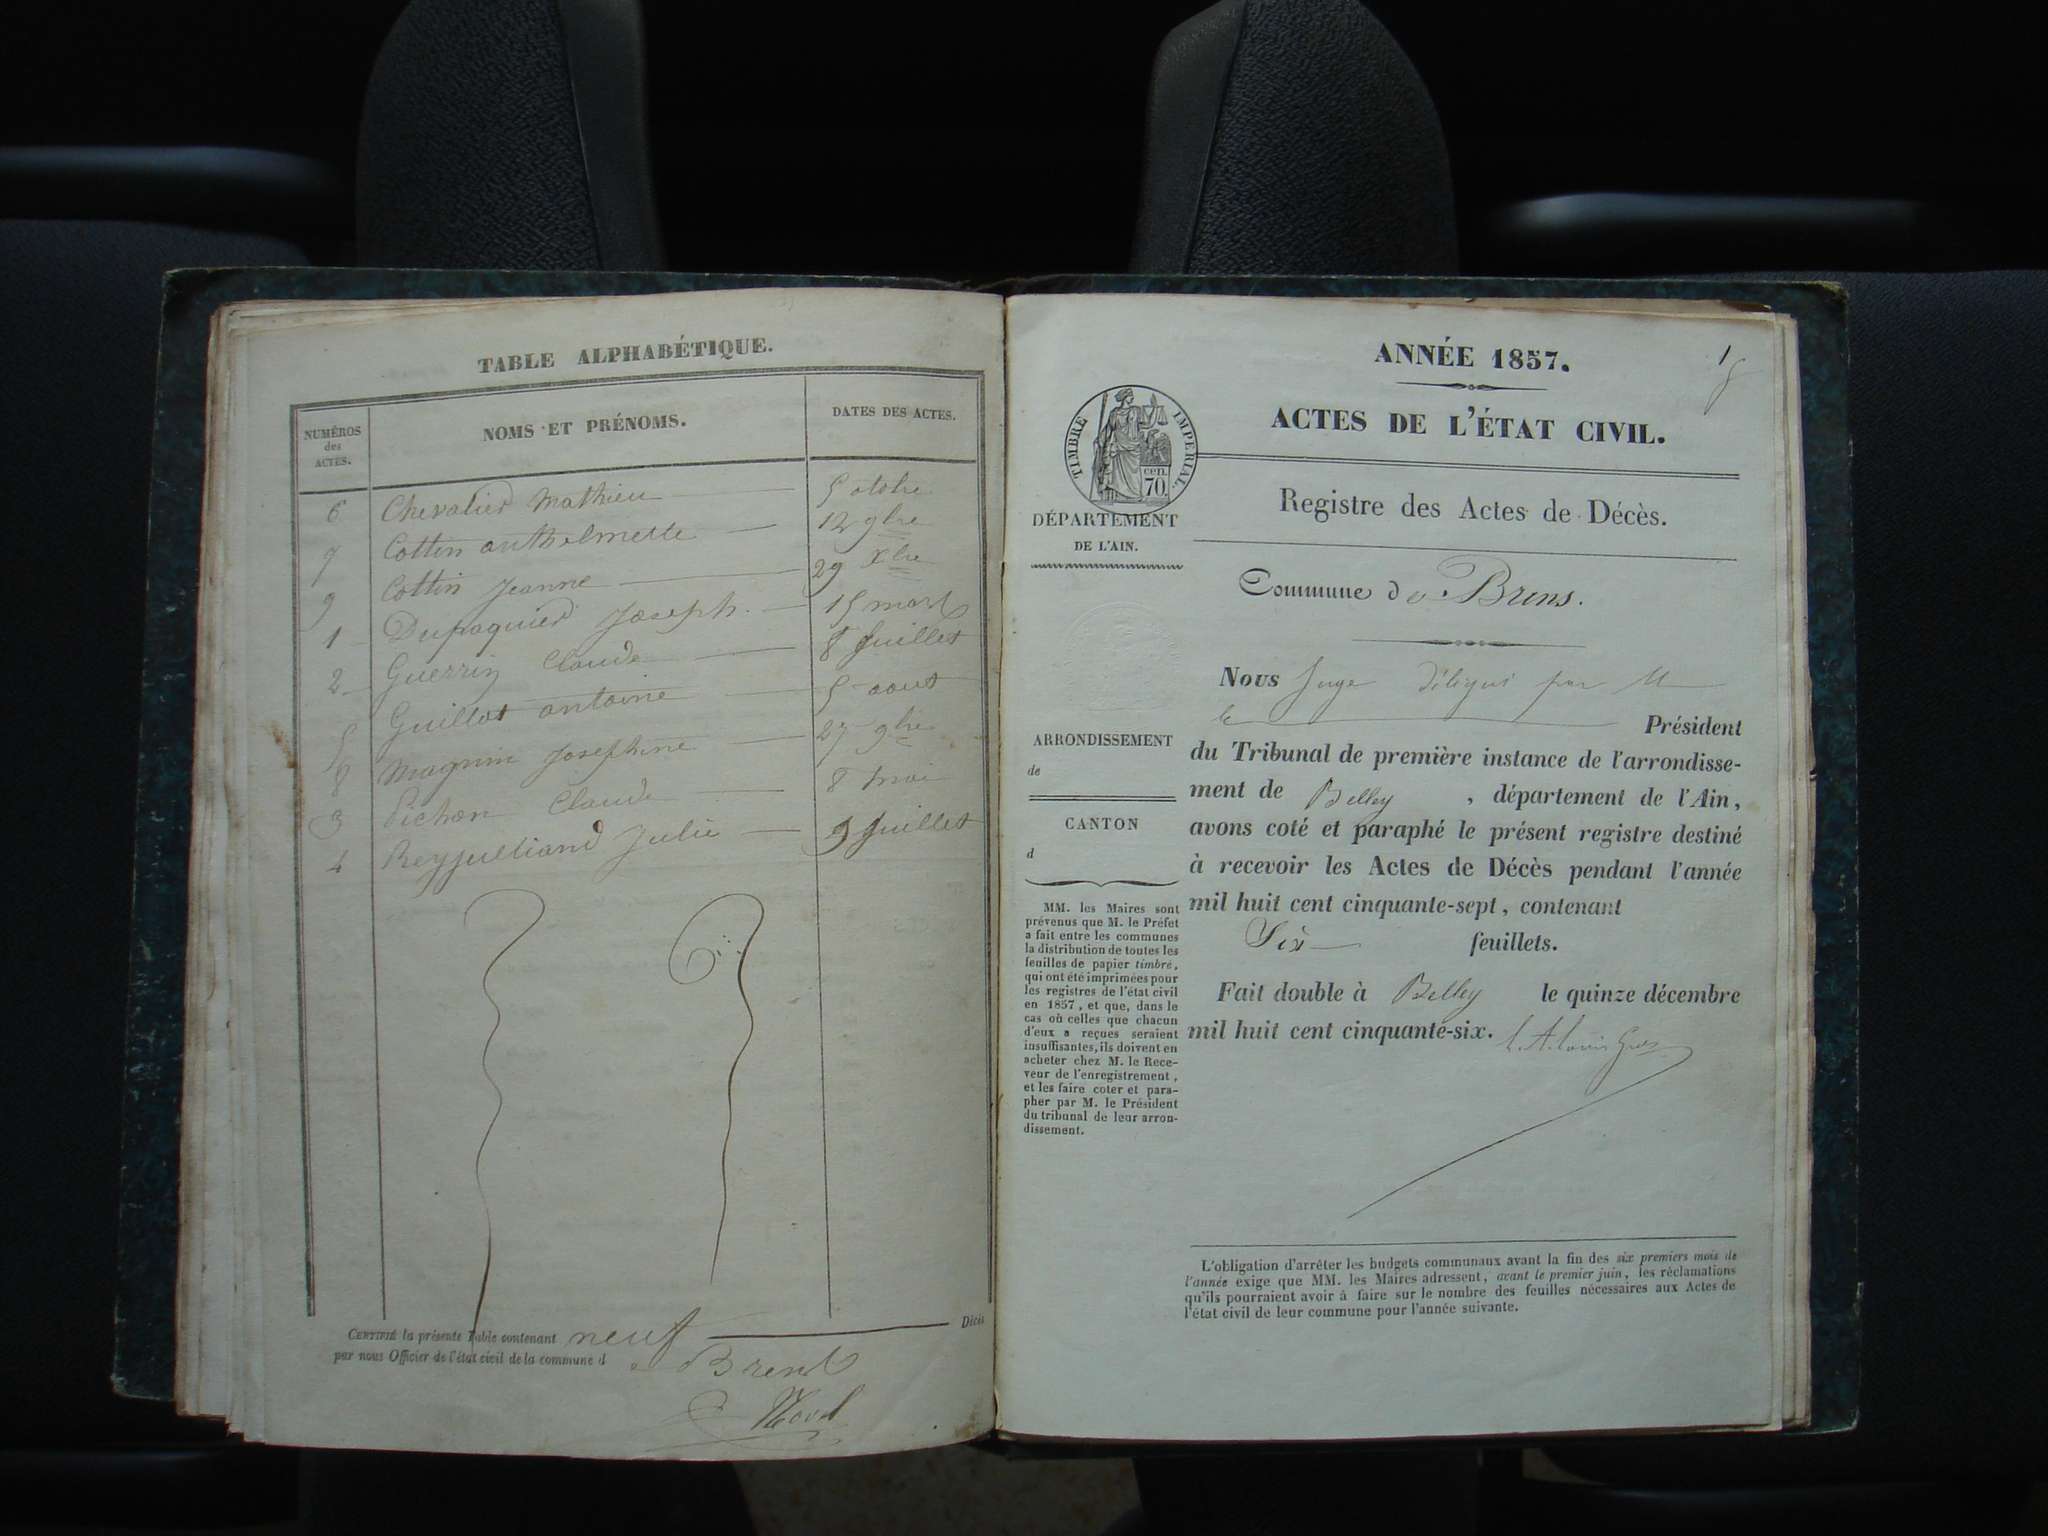 TABLE ALPHABÉTIQUE.
NUMÉROS des ACTES.
NOMS ET PRÉNOMS.
DATES DES ACTES.
6 Chevalier Mathieu 5 otobre
7 Cottin anthelmette 12 9bre
9 Cottin Jeanne 29 Xbre
1 Dupaquier Joseph 15 mars
2 Guerrin Claude 8 Juillet
5 Guillot antoine 5 aout
8 Magnin Josephine 27 9bre
3 Pichon Claude 8 mai
4 Reyjulliand Julie 9 Juillet
CERTIFIÉ la présente Table contenant neuf Décès
par nous Officier de l'état civil de la commune de Brens
ANNÉE 1857.
1
ACTES DE L'ÉTAT CIVIL.
TIMBRE IMPÉRIAL.
cen.
70.
Registre des Actes de Décès.
DÉPARTEMENT
DE L'AIN.
Commune de Brens.
Nous Juge délégué par M
le Président
du Tribunal de première instance de l'arrondisse-
ment de Belley, département de l'Ain,
avons coté et paraphé le présent registre destiné
à recevoir les Actes de Décès pendant l'année
mil huit cent cinquante-sept, contenant
Six feuillets.
Fait double à Belley le quinze décembre
mil huit cent cinquante-six.
ARRONDISSEMENT
de
CANTON
d
MM. les Maires sont
prévenus que M. le Préfet
a fait entre les communes
la distribution de toutes les
feuilles de papier timbré,
qui ont été imprimées pour
les registres de l'état civil
en 1857, et que, dans le
cas où celles que chacun
d'eux a reçues seraient
insuffisantes, ils doivent en
acheter chez M. le Rece-
veur de l'enregistrement,
et les faire coter et para-
pher par M. le Président
du tribunal de leur arron-
dissement.
L'obligation d'arrêter les budgets communaux avant la fin des six premiers mois de
l'année exige que MM. les Maires adressent, avant le premier juin, les réclamations
qu'ils pourraient avoir à faire sur le nombre des feuilles nécessaires aux Actes de
l'état civil de leur commune pour l'année suivante.